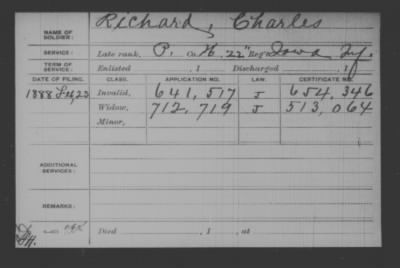 NAME OF SOLDIER: Richard, Charles
SERVICE: Late rank, P. Co. H. 22" Reg't Iowa Inf.
TERM OF SERVICE: Enlisted , 1 Discharged , 1
DATE OF FILING. CLASS. APPLICATION NO. LAW. CERTIFICATE NO.
1888 23 Invalid, 641,517 J 654,346
Widow, 712,719 J 513,064
Minor,
ADDITIONAL SERVICES:
REMARKS:
Died , 1 , at